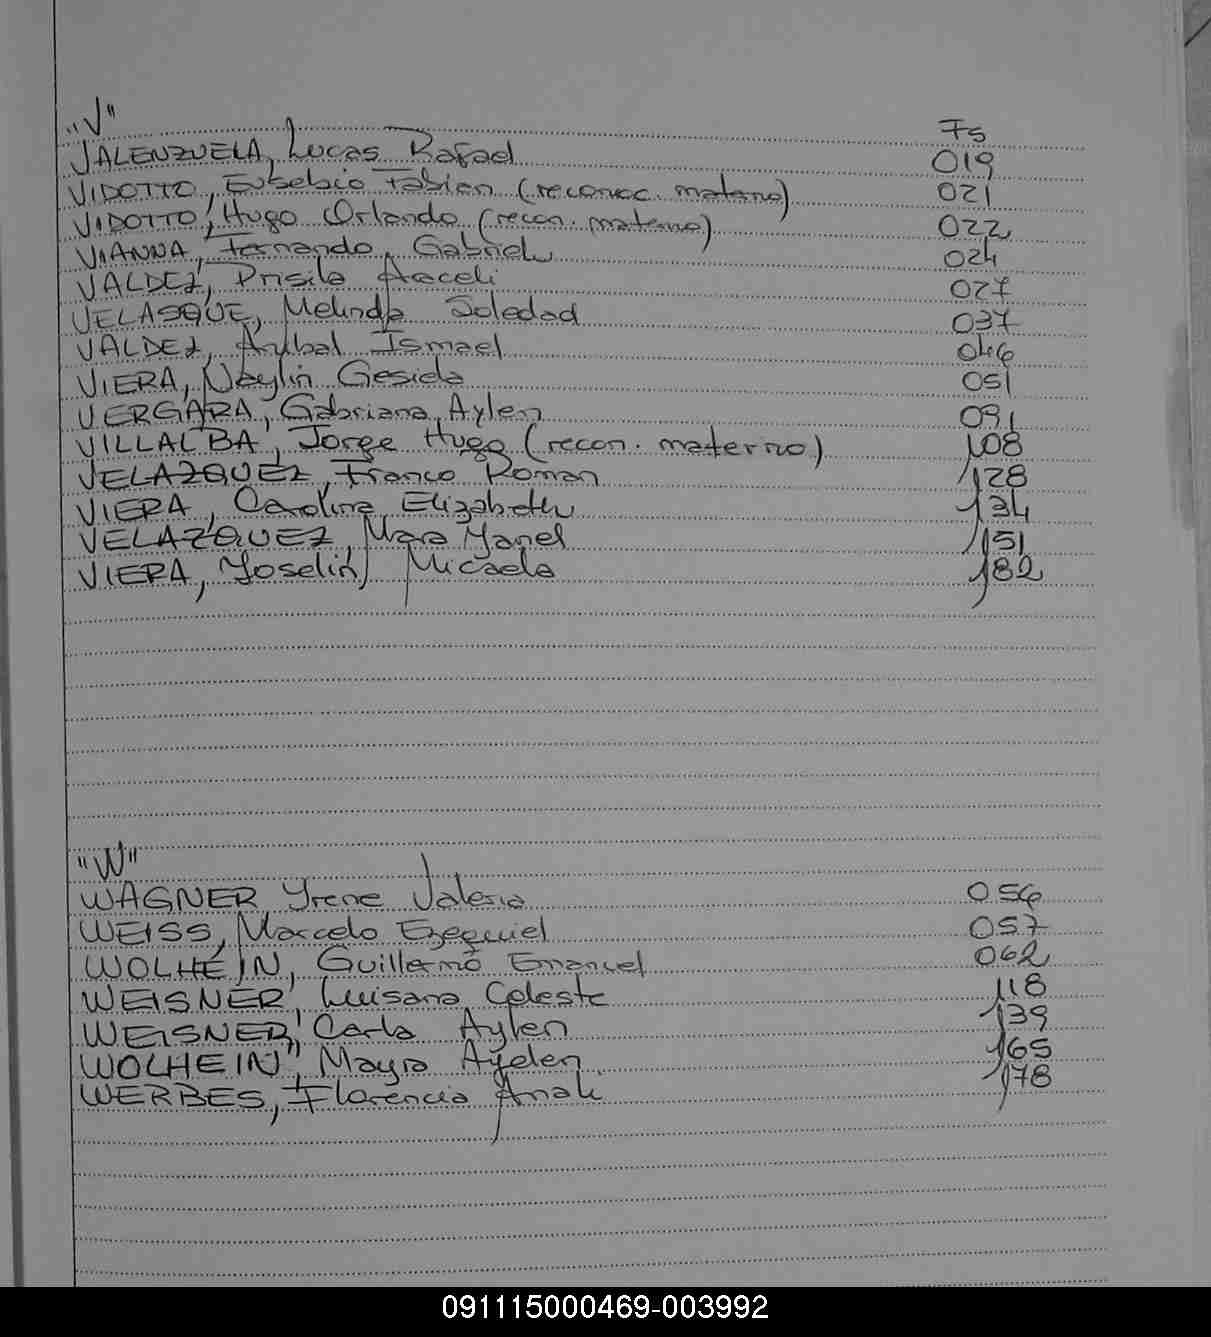 "V"
Fs
VALENZUELA, Lucas Rafael 019
VIDOTTO, Eusebio Fabian (reconoc. materno) 021
VIDOTTO, Hugo Orlando (recon. materno) 022
VIANNA, Fernando Gabriel 024
VALDEZ, Prisila Araceli 027
VELASQUE, Melinda Soledad 037
VALDEZ, Anibal Ismael 046
VIERA, Naylin Gesiela 051
VERGARA, Gabriana Aylen 091
VILLALBA, Jorge Hugo (recon. materno) 108
VELAZQUEZ, Franco Roman 128
VIERA, Carolina Elizabeth 134
VELAZQUEZ, Mara Yanel 151
VIERA, Yoselin Micaela 182
"W"
WAGNER Yrene Valeria 056
WEISS, Marcelo Ezequiel 057
WOLHEIN, Guillermo Emanuel 062
WEISNER, Luisana Celeste 118
WEISNER, Carla Aylen 139
WOLHEIN, Mayra Ayelen 165
WERBES, Florencia Anali 178
091115000469-003992